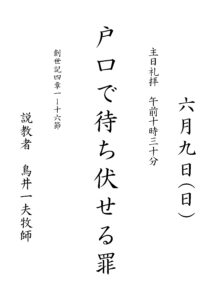 六月九日(日)
主日礼拝　午前十時三十分
戸口で待ち伏せる罪
創世記四章一ー十六節
説教者　鳥井一夫牧師